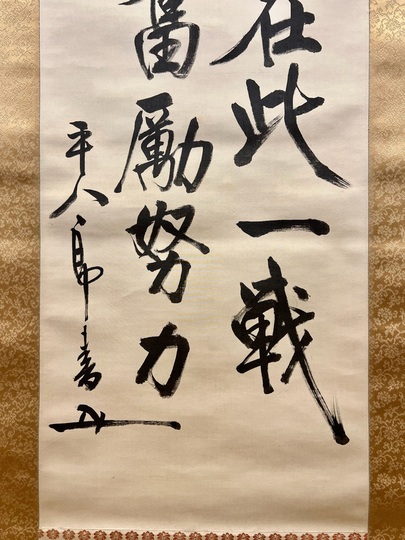 在此一戦
奮勵努力
平八郎書